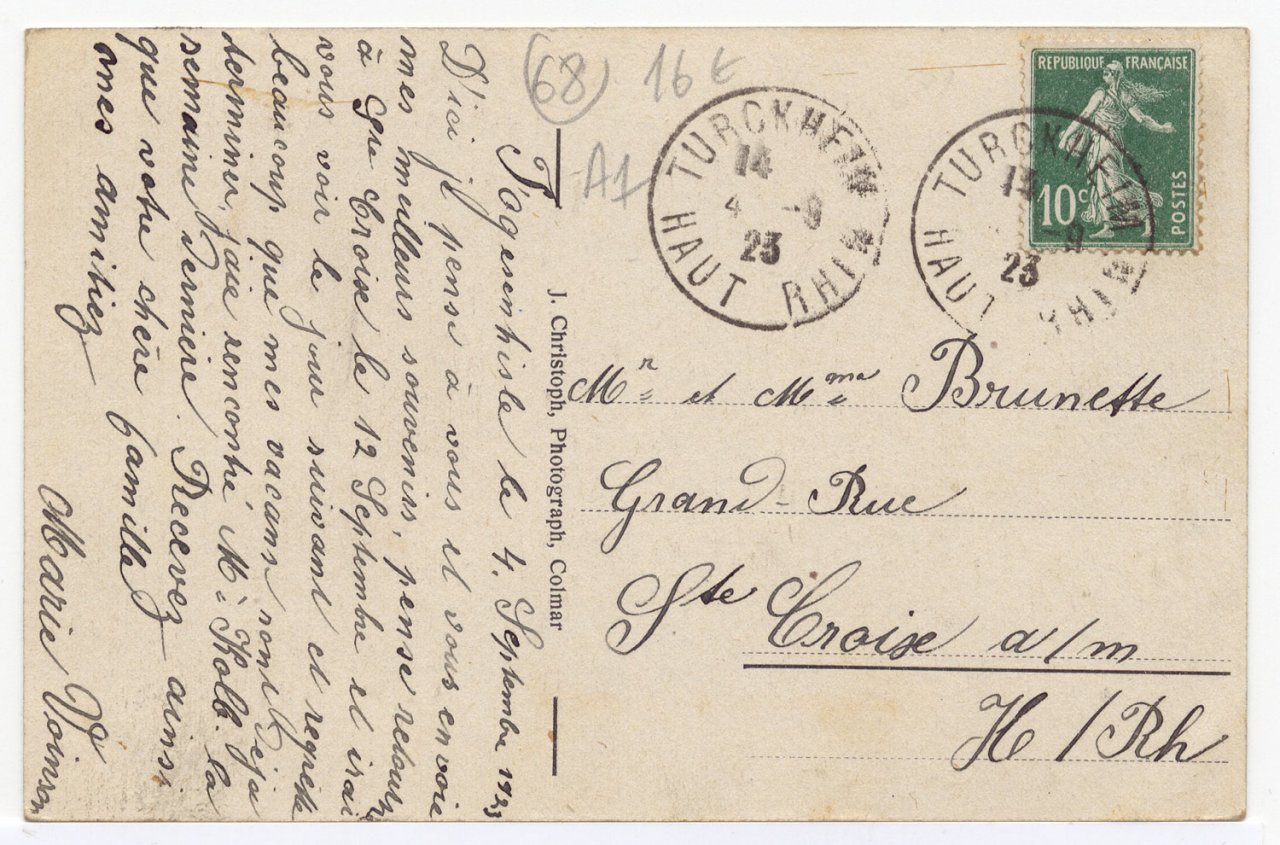 (68) 16 €
A1
REPUBLIQUE FRANÇAISE
10c
POSTES
TURCKHEIM
14
4 -9
23
HAUT RHIN
TURCKHEIM
14
-9
23
HAUT RHIN
le 4. Septembre 1923
D'ici je pense à vous et vous envoie
mes meilleurs souvenirs, pense retour
à Gue Croise le 12 Septembre et irai
vous voir le jour suivant et regrette
beaucoup que mes vacans sont deja
terminer, jaie rencontré M. Kolb. la
semaine derniere. Recevez ainsi
que votre chère famille
mes amitiez
Marie Voinson
J. Christoph, Photograph, Colmar
Mr et Mme Brunette
Grand-Rue
Ste Croise a/m
H/Rh